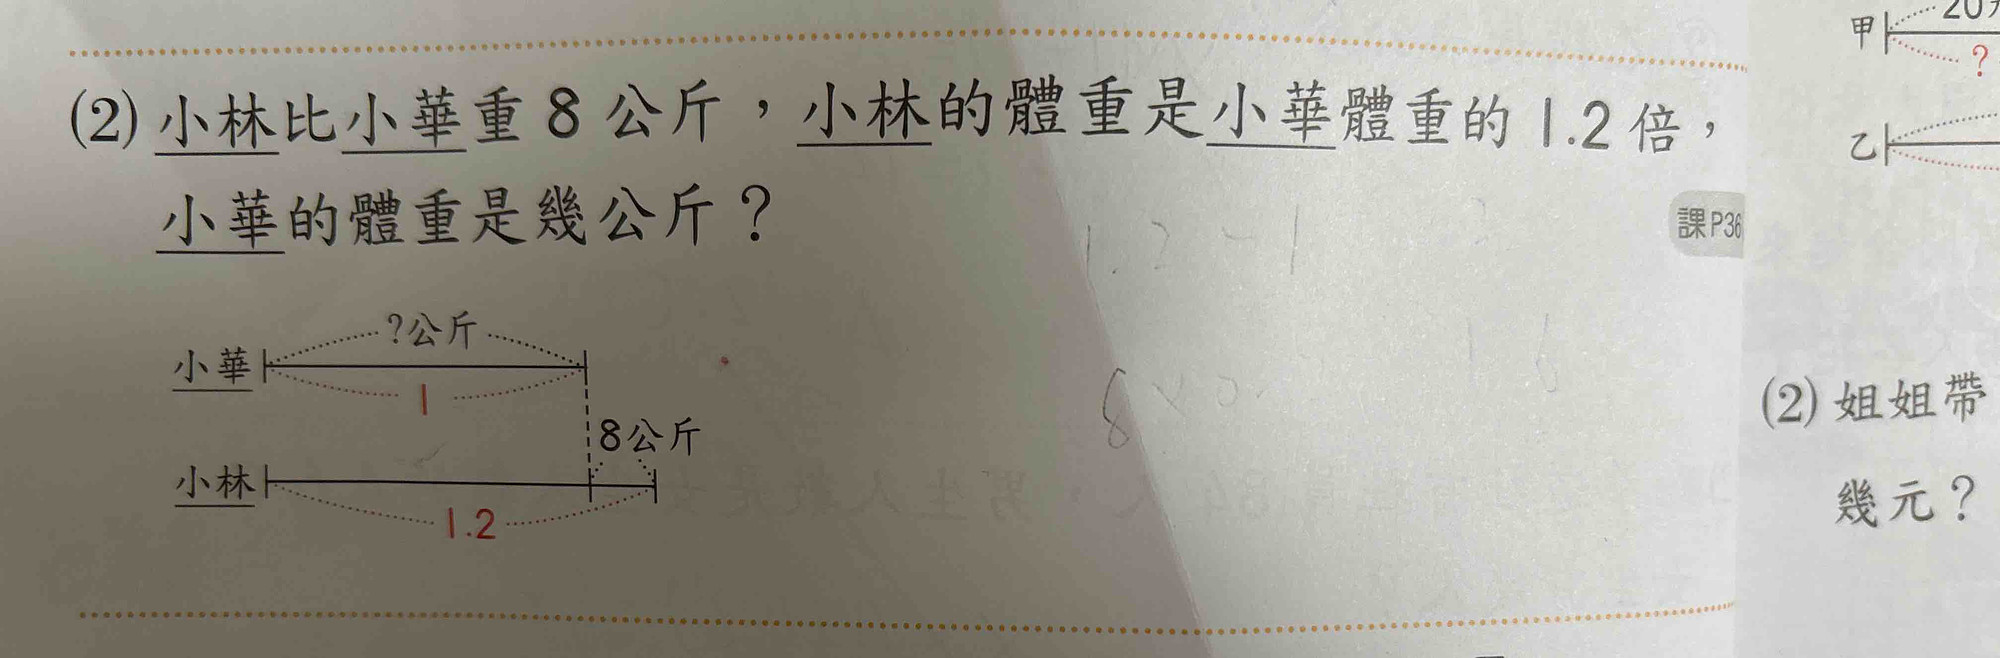 (2) 小林比小華重 8 公斤，小林的體重是小華體重的 1.2 倍，
小華的體重是幾公斤？
課P36
1.2-1
8×0.
?公斤
小華
1
8公斤
小林
1.2
甲
?
乙
(2) 姐姐帶
幾元？